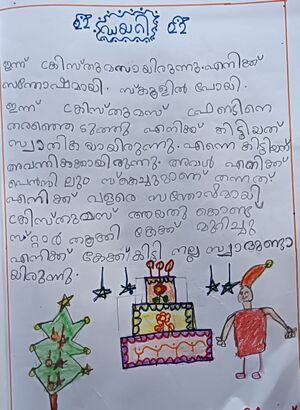 ഡയറി
ഇന്ന് ക്രിസ്തുമസായിരുന്നു. എനിക്ക്
സന്തോഷമായി. സ്കൂളിൽ പോയി.
ഇന്ന് ക്രിസ്തുമസ് ഫ്രണ്ടിനെ
തരഞ്ഞെടുത്തു എനിക്ക് കിട്ടിയത്
സ്വാതികയായിരുന്നു. എന്നെ കിട്ടിയത്
അവന്തികക്കായിരുന്നു. അവൾ എനിക്ക്
പെൻസിലും സ്കെച്ചുമാണ് തന്നത്.
എനിക്ക് വളരെ സന്തോഷമായി
ക്രിസ്തുമസ് ആയതു കൊണ്ടു
സ്റ്റാർ തൂക്കി കേക്ക് മുറിച്ചു
എനിക്ക് കേക്ക് കിട്ടി നല്ല സ്വാദുണ്ടാ
യിരുന്നു.